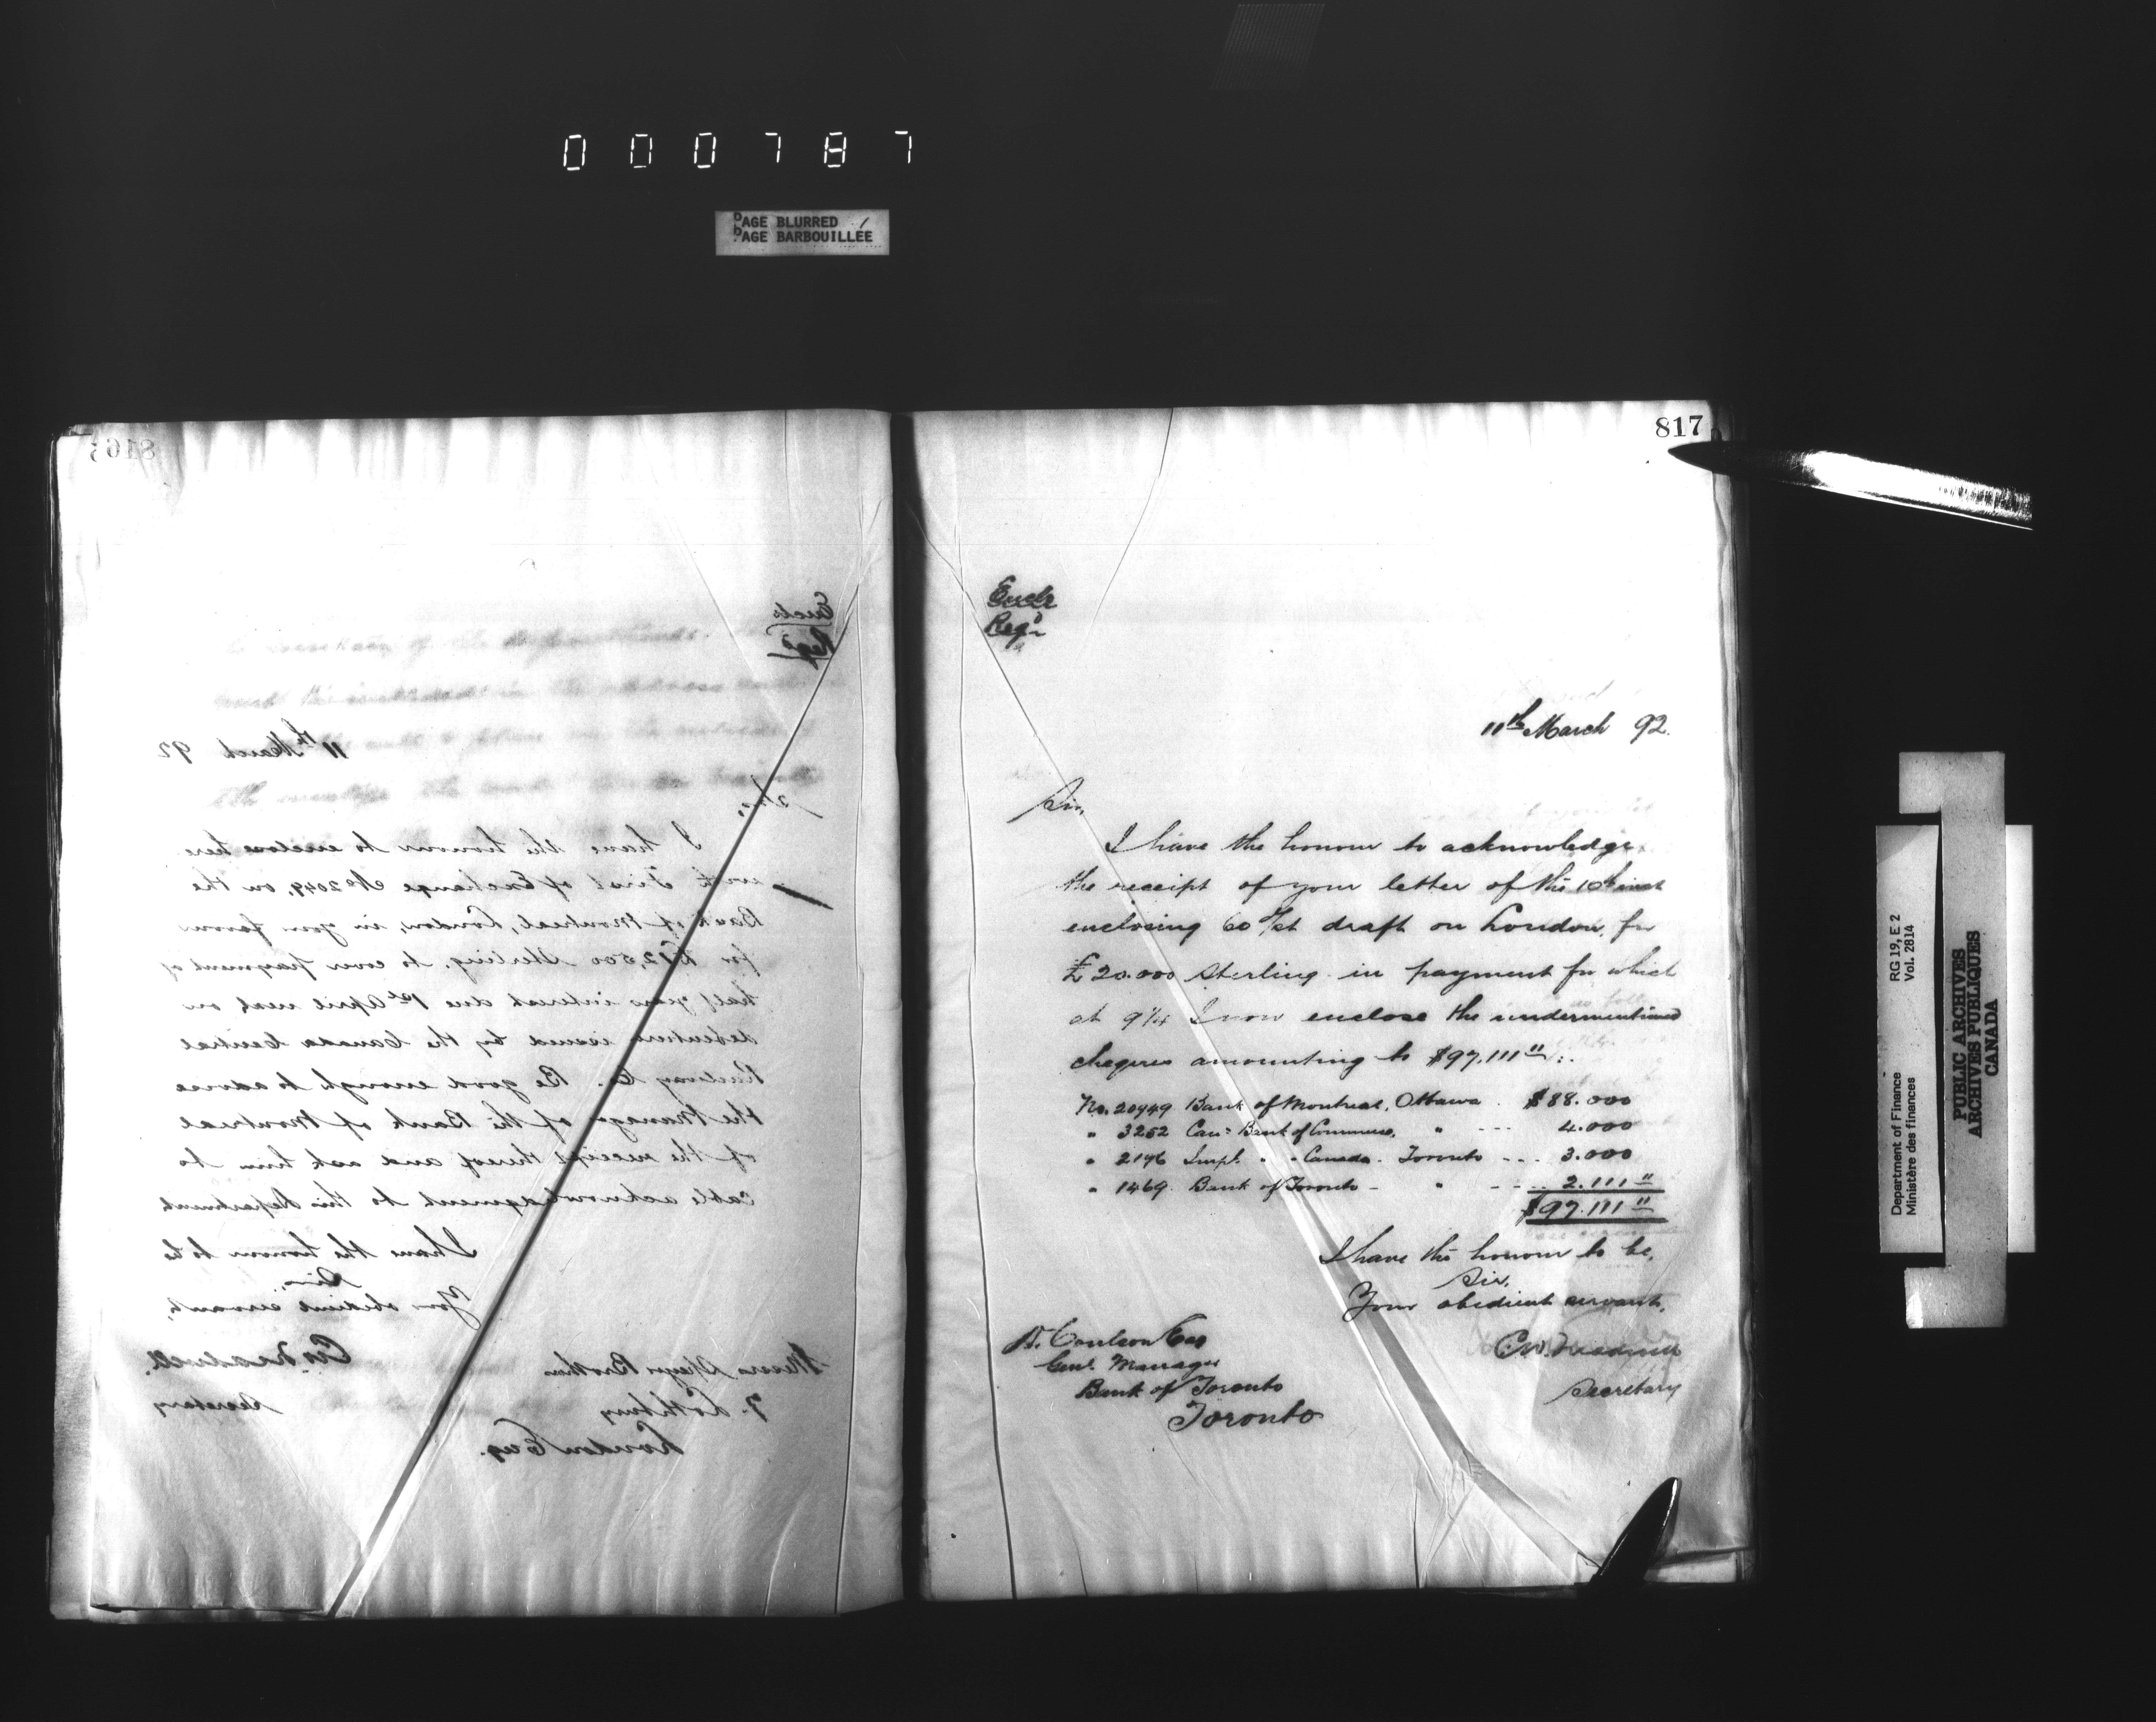 000787
PAGE BLURRED
PAGE BARBOUILLÉE
816
Encls
Regd
11th March 92
Sir,
I have the honour to enclose here
with First of Exchange No 2049, on the
Bank of Montreal, London, in your favour
for £12,500 Sterling, to cover payment of
half years interest due 1st April next on
debentures issued by the Canada Central
Railway Co. Be good enough to advise
the Manager of the Bank of Montreal
of the receipt thereof and ask him to
cable acknowledgment to this Department
I have the honour to be
Sir,
Your obedient servant,
Secretary
Messrs Speyer Brothers
7. Lothbury
London Eng.
817
Encls
Regd
11th March 92.
Sir,
I have the honour to acknowledge
the receipt of your letter of the 10th inst
enclosing 60 d/st draft on London, for
£20.000 sterling in payment for which
at 9 1/4 I now enclose the undermentioned
cheques amounting to $97.111 11:
No. 20949 Bank of Montreal, Ottawa $88.000
" 3252 Can: Bank of Commerce, " --- 4.000
" 2196 Impl. " " Canada. Toronto --- 3.000
" 1469. Bank of Toronto - " ---- 2.111 11
$97.111 11
I have the honour to be,
Sir,
Your obedient servant,
Secretary
D. Coulson Esq
Genl. Manager
Bank of Toronto
Toronto
Department of Finance RG 19, E 2
Ministère des finances Vol. 2814
PUBLIC ARCHIVES
ARCHIVES PUBLIQUES
CANADA